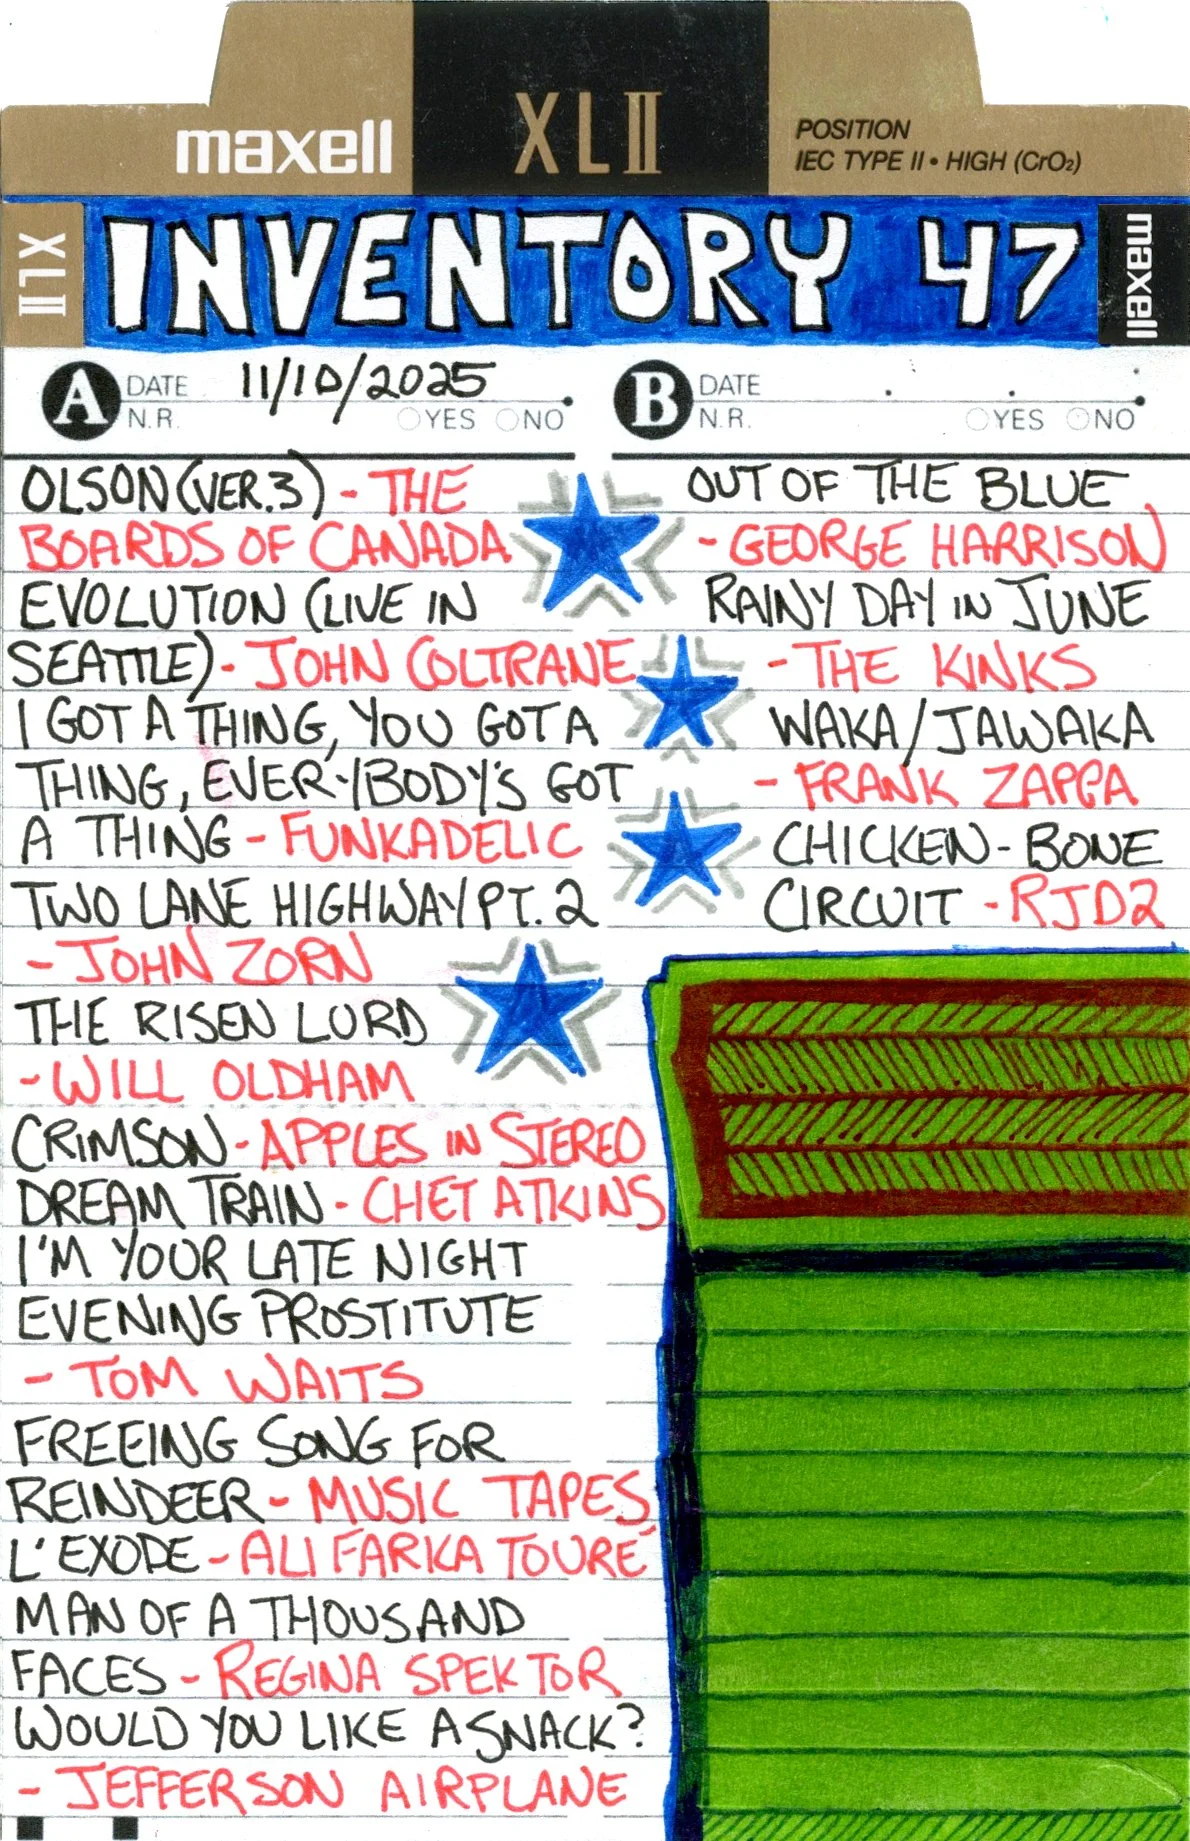 maxell XLII POSITION
IEC TYPE II • HIGH (CrO₂)
XLII INVENTORY 47 maxell
A DATE 11/10/2025
N.R. YES NO
OLSON (VER.3) - THE
BOARDS OF CANADA
EVOLUTION (LIVE IN
SEATTLE) - JOHN COLTRANE
I GOT A THING, YOU GOT A
THING, EVERYBODY'S GOT
A THING - FUNKADELIC
TWO LANE HIGHWAY PT. 2
- JOHN ZORN
THE RISEN LORD
- WILL OLDHAM
CRIMSON - APPLES IN STEREO
DREAM TRAIN - CHET ATKINS
I'M YOUR LATE NIGHT
EVENING PROSTITUTE
- TOM WAITS
FREEING SONG FOR
REINDEER - MUSIC TAPES
L'EXODE - ALI FARKA TOURÉ
MAN OF A THOUSAND
FACES - REGINA SPEKTOR
WOULD YOU LIKE A SNACK?
- JEFFERSON AIRPLANE
B DATE
N.R. YES NO
OUT OF THE BLUE
- GEORGE HARRISON
RAINY DAY IN JUNE
- THE KINKS
WAKA/JAWAKA
- FRANK ZAPPA
CHICKEN-BONE
CIRCUIT - RJD2